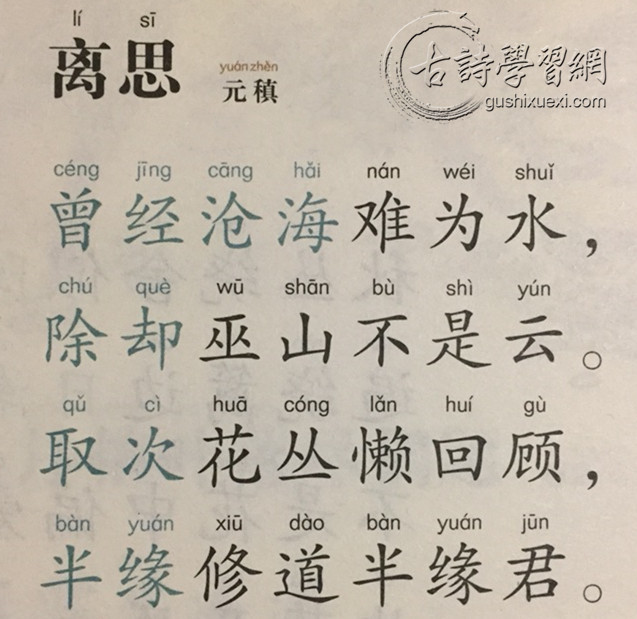 lí sī
离思
yuán zhěn
元稹
古詩學習網
gushixuexi.com
céng jīng cāng hǎi nán wéi shuǐ
曾经沧海难为水，
chú què wū shān bù shì yún
除却巫山不是云。
qǔ cì huā cóng lǎn huí gù
取次花丛懒回顾，
bàn yuán xiū dào bàn yuán jūn
半缘修道半缘君。